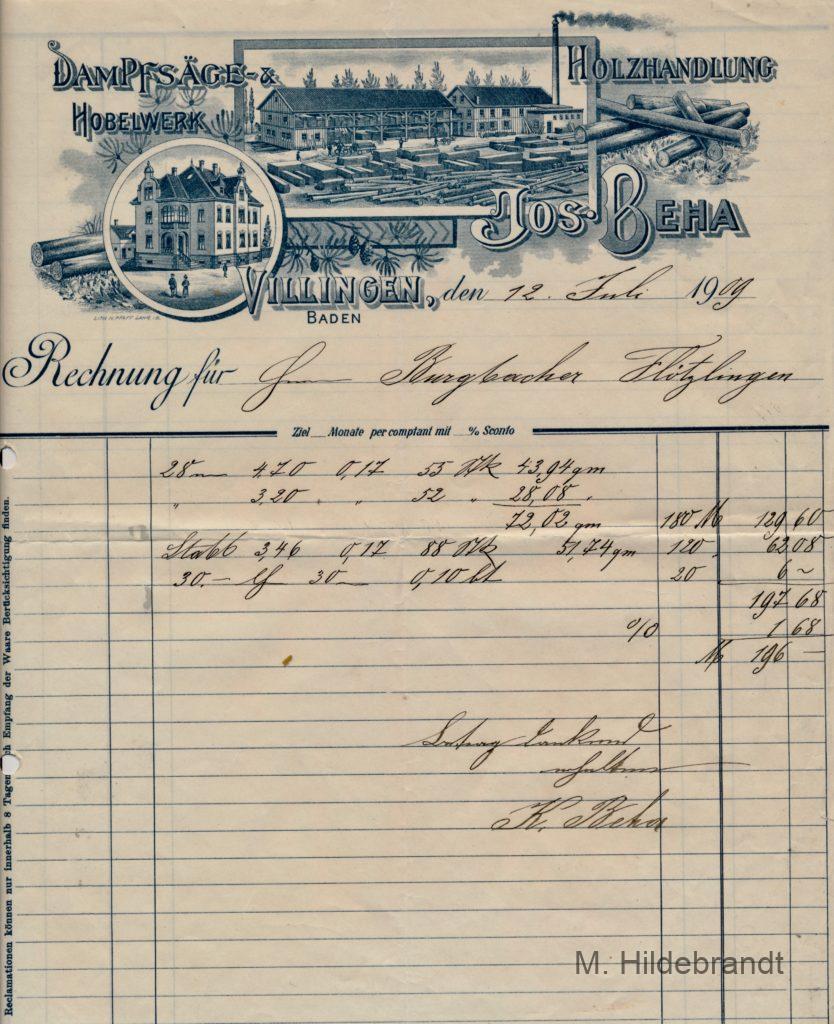 DAMPFSÄGE- & HOLZHANDLUNG
HOBELWERK
JOS. BEHA
VILLINGEN, den 12. Juli 1909
BADEN
LITH. H. PFAFF LAHR i/B.
Rechnung für Herrn Burgbacher Flötzlingen
Ziel Monate per comptant mit % Sconto
28 m 4,70 0,17 55 Stk 43,94 qm
" 3,20 " " 52 " 28,08 "
72,02 qm 180 M 129 60
3,46 0,17 88 Stk 51,74 qm 120 " 62 08
30.– 30 0,10 20 6 ~
197 68
% 1 68
M 196 —
Betrag dankend
erhalten
K. Beha
Reclamationen können nur innerhalb 8 Tagen nach Empfang der Waare Berücksichtigung finden.
M. Hildebrandt